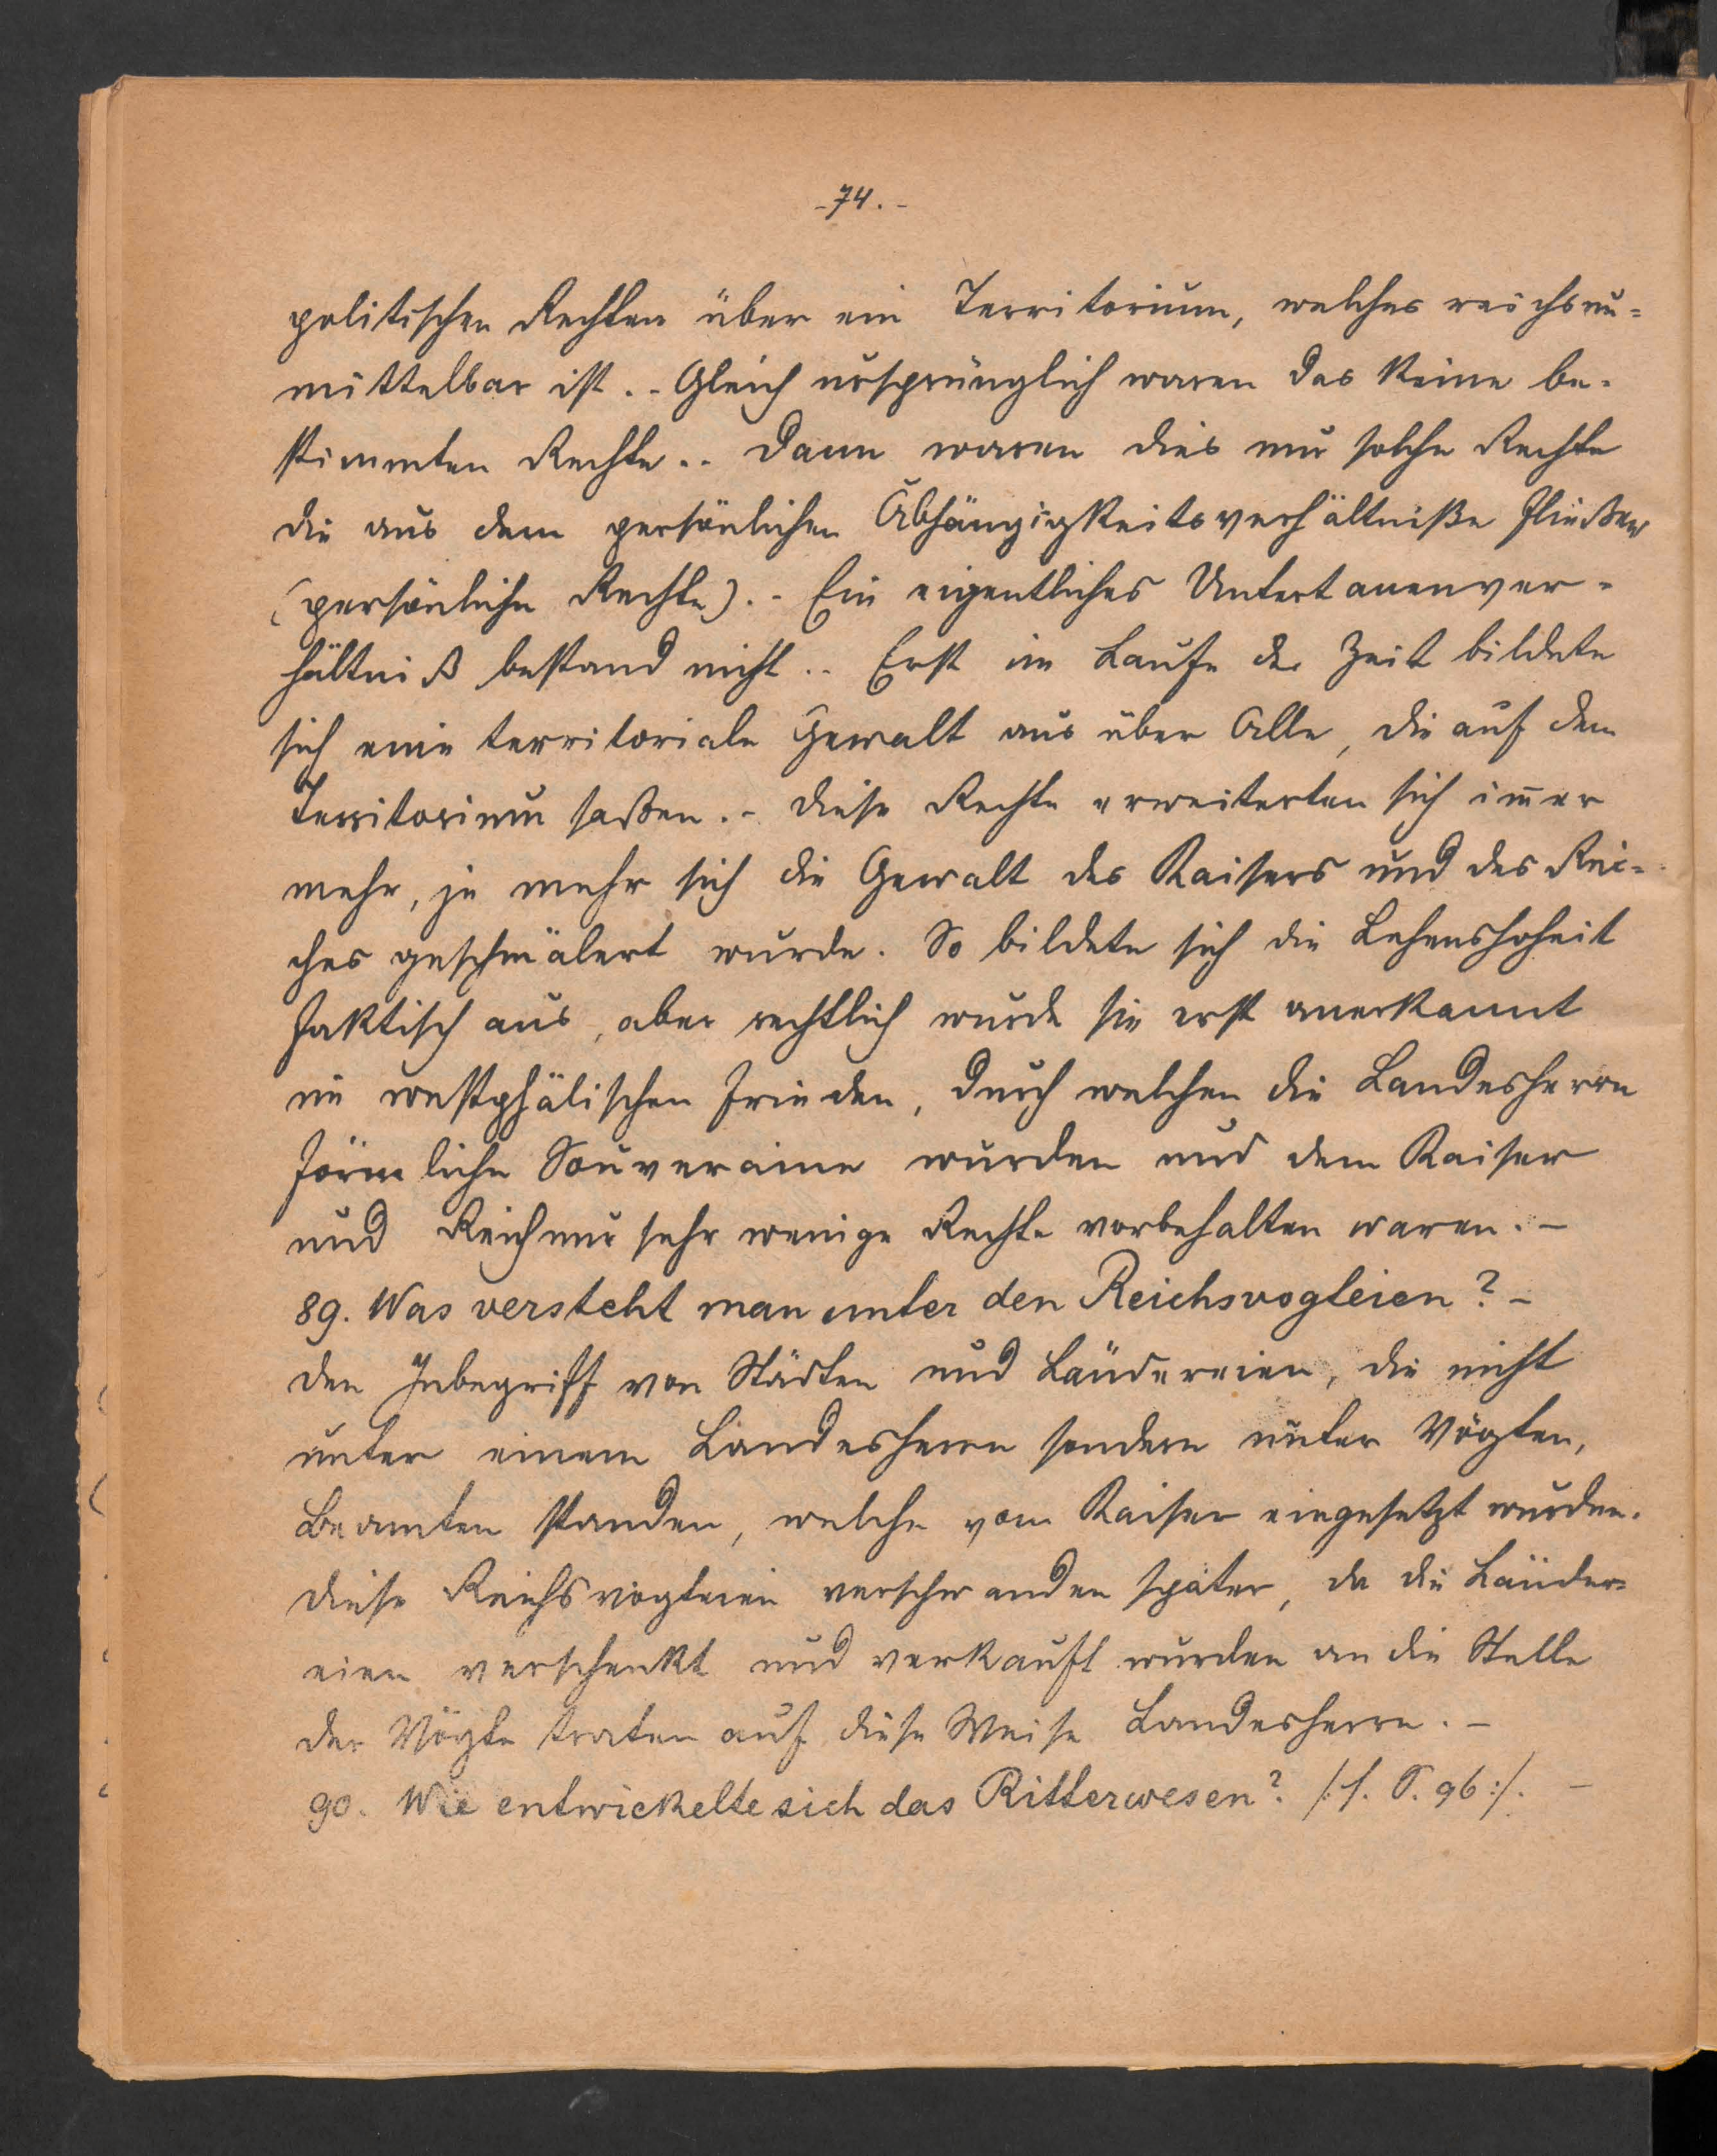 -74.-
politischen Rechten über ein Territorium, welches reichsun-
mittelbar ist.- Gleich ursprünglich waren das keine be-
stimmten Rechte.- Dann waren dies nur solche Rechte
die aus dem persönlichen Abhängigkeitsverhältniße fließen
(persönliche Rechte).- Ein eigentliches Untertanenver-
hältniß bestand nicht.- Erst im Laufe der Zeit bildete
sich eine territoriale Gewalt aus über Alle, die auf dem
Territorium saßen.- Diese Rechte erweiterten sich im̄er
mehr, je mehr sich die Gewalt des Kaisers und des Rei-
ches geschmälert wurde. So bildete sich die Lehenshoheit
faktisch aus, aber rechtlich wurde sie erst anerkannt
im westphälischen Frieden, durch welchen die Landesherrn
förmliche Souveraine wurden und dem Kaiser
und Reich nur sehr wenige Rechte vorbehalten waren.-
89. Was versteht man unter den Reichsvogteien?-
Den Inbegriff von Städten und Ländereien, die nicht
unter einem Landesherrn sondern unter Vögten,
Beamten standen, welche vom Kaiser eingesetzt wurden.
Diese Reichsvogteien verschwanden später, da die Länder-
eien verschenkt und verkauft wurden an die Stelle
der Vögte traten auf diese Weise Landesherrn.-
90. Wie entwickelte sich das Ritterwesen? /:s. S. 96:/. -